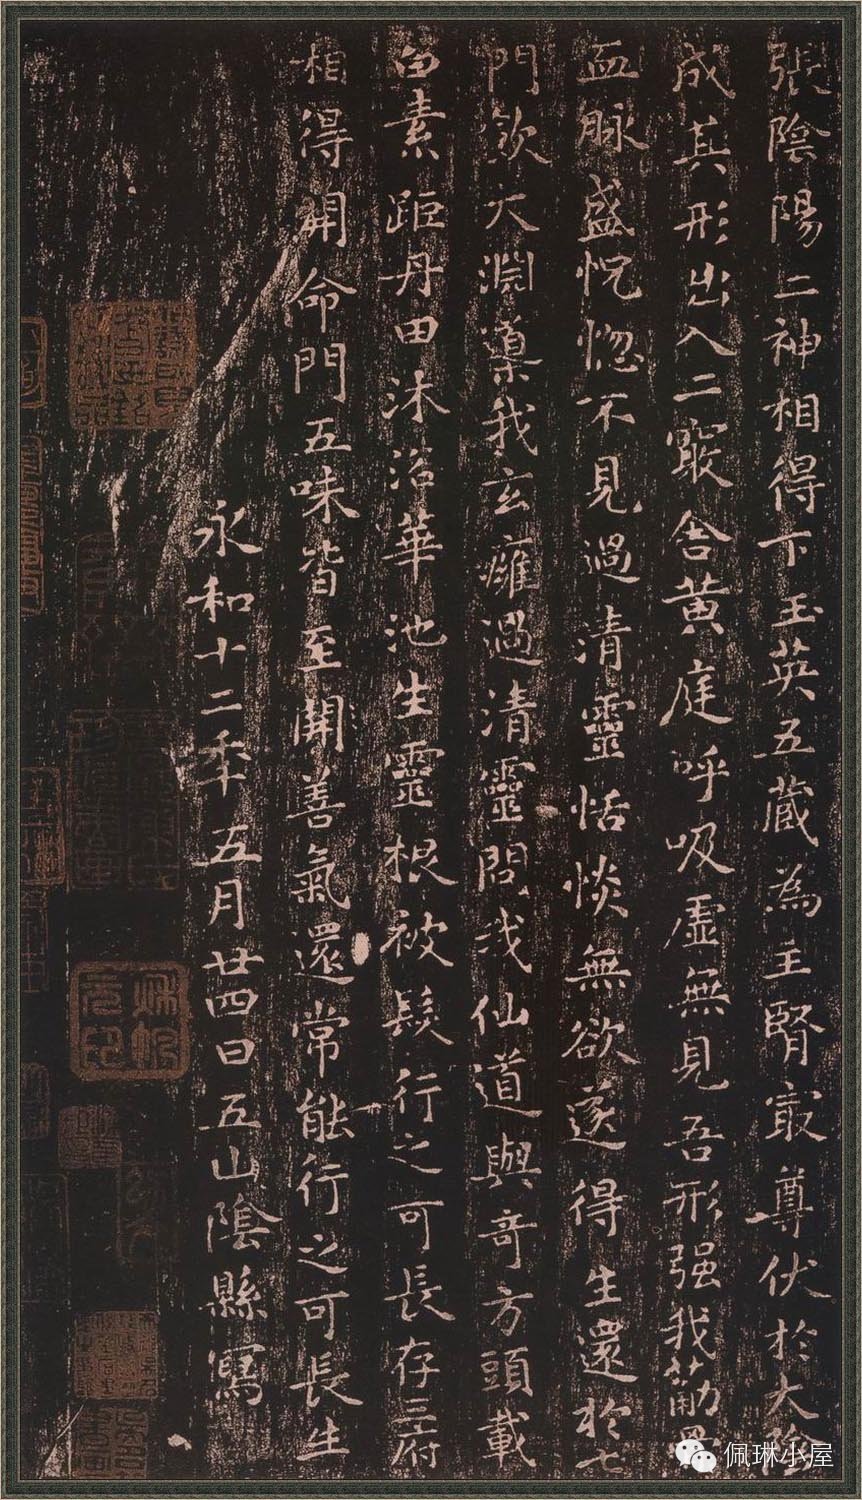 張陰陽二神相得下玉英五藏為主腎寂尊伏於大陰
成其形出入二竅舍黄庭呼吸虛無見吾形强我筋骨
血脉盛怳惚不見過清靈恬惔無欲遂得生還於七
門飲大淵導我玄癰過清靈問我仙道與奇方頭載
白素距丹田沐浴華池生靈根被髮行之可長存三府
相得開命門五味皆至開善氣還常能行之可長生
永和十二年五月廿四日五山陰縣寫
佩琳小屋